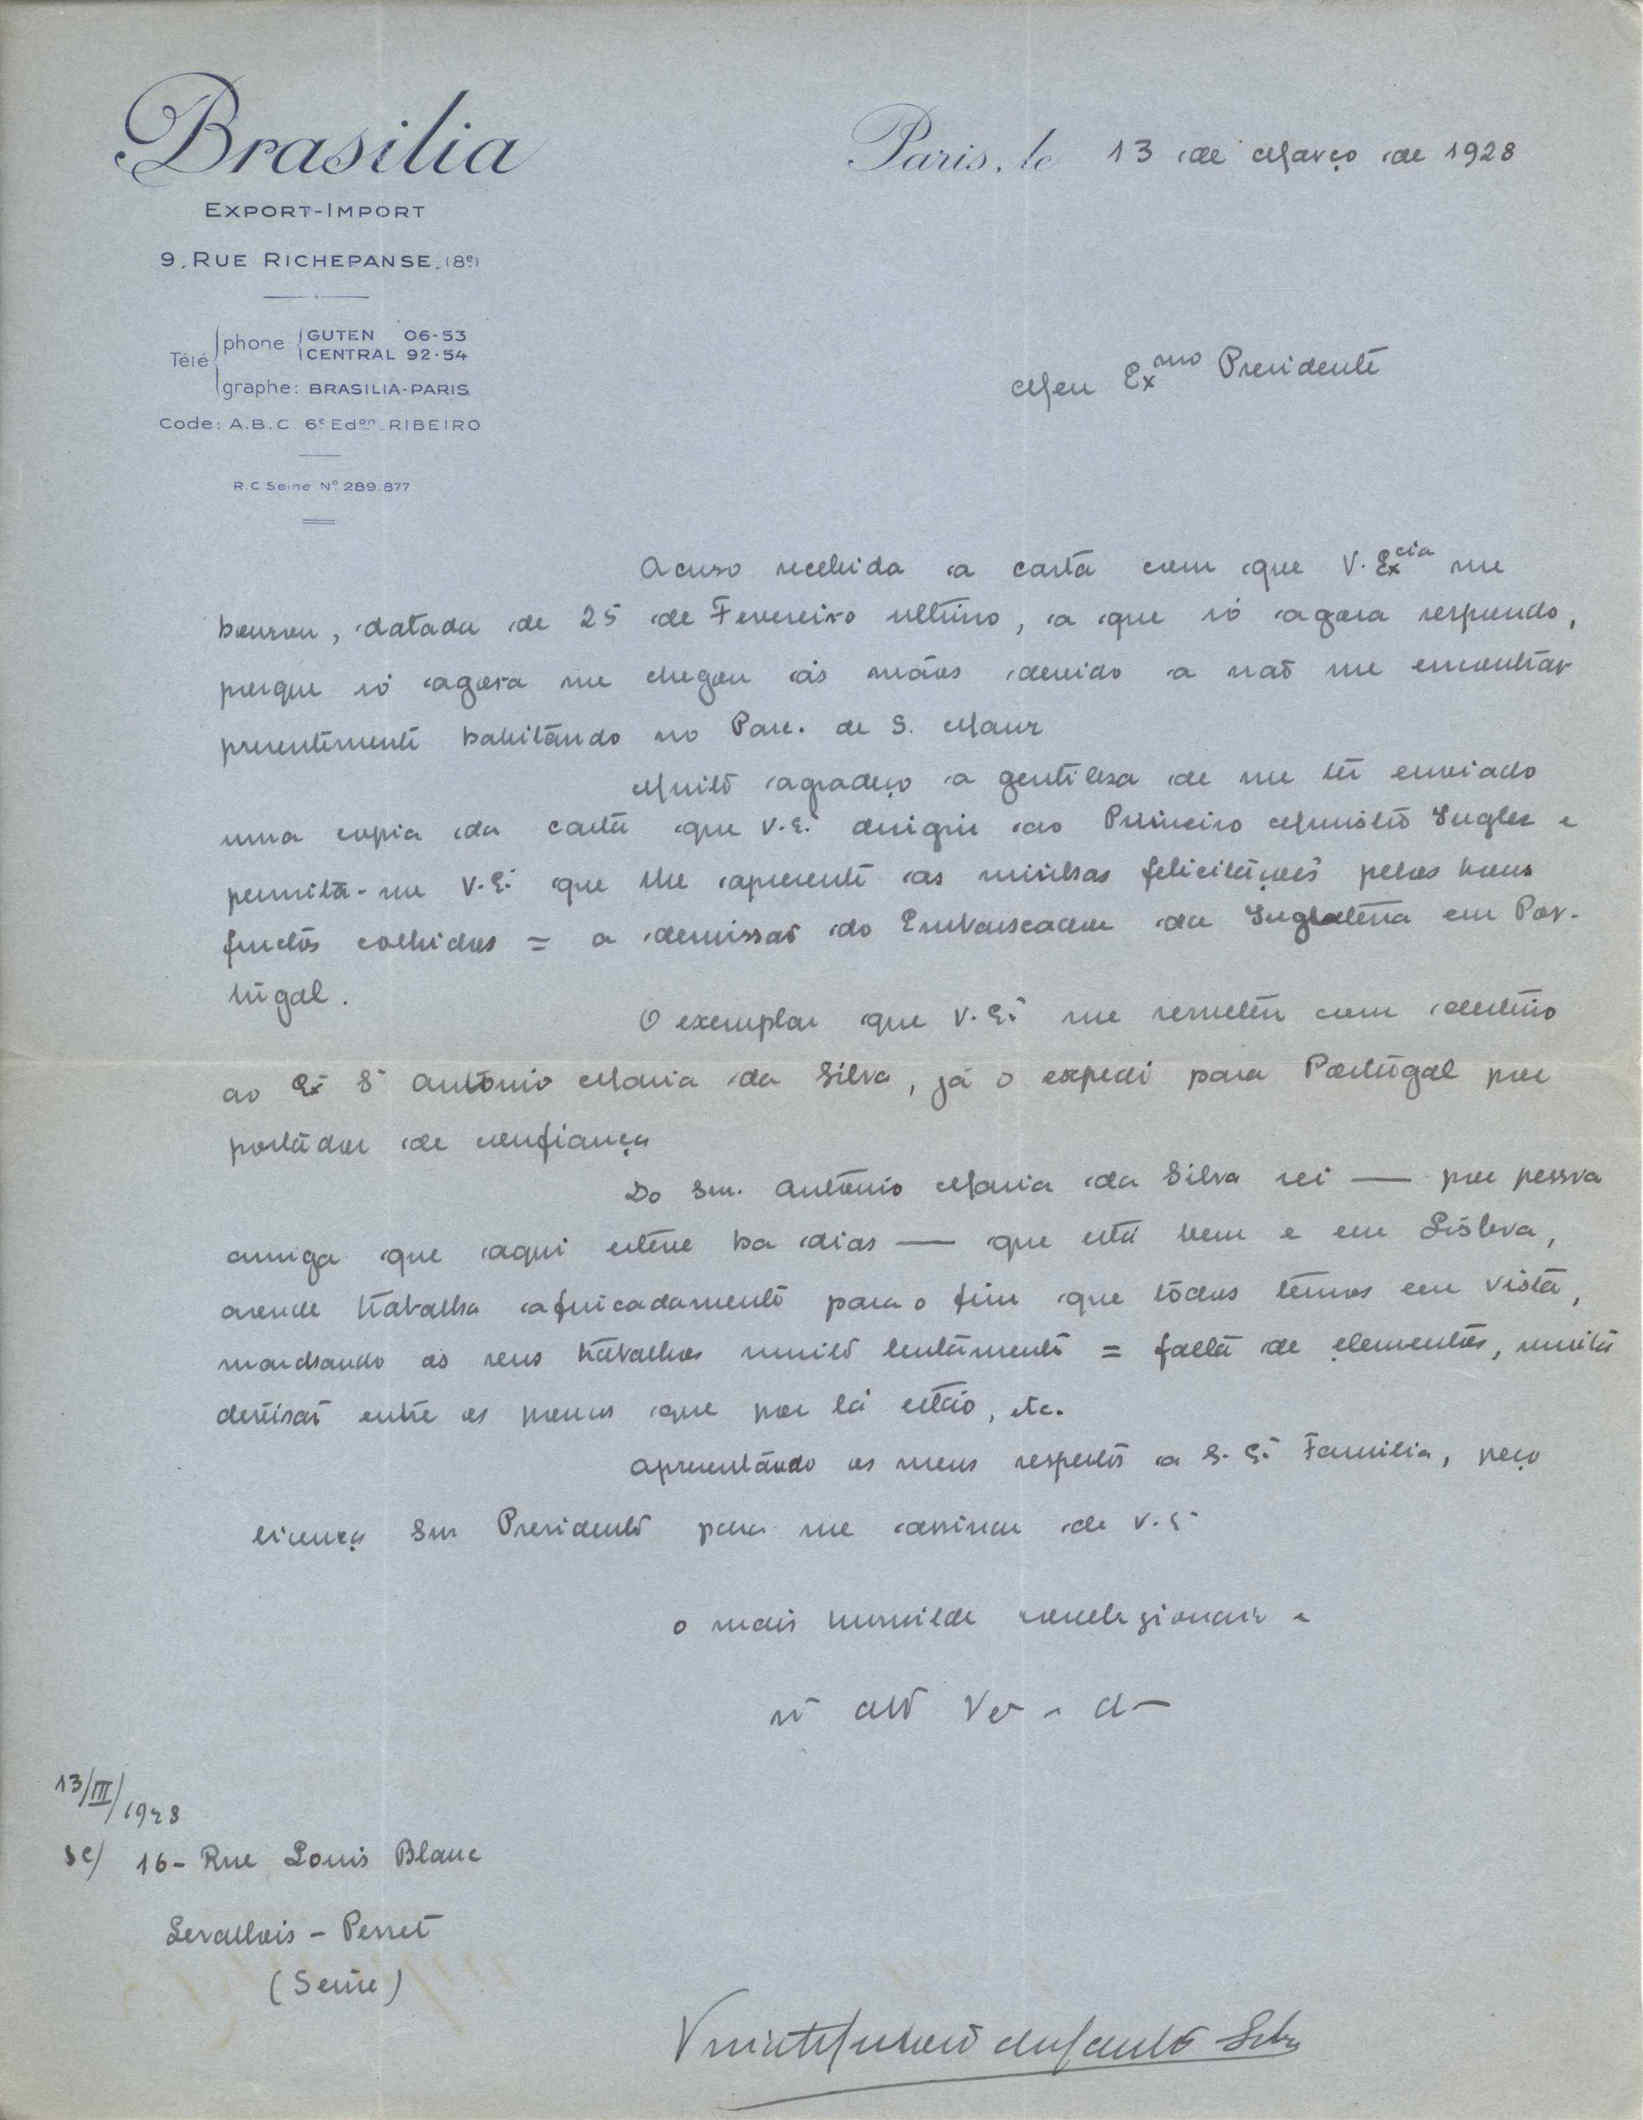 Brasilia
EXPORT-IMPORT
9, RUE RICHEPANSE. (8e)
Télé phone GUTEN 06-53
CENTRAL 92-54
graphe: BRASILIA-PARIS
Code: A.B.C. 6e Edon. RIBEIRO
R.C. Seine No 289.877
Paris, le 13 de Março de 1928
Meu Exmo Presidente
Acuso recebida a carta com que V. Excia me
honrou, datada de 25 de Fevereiro ultimo, a que só agora respondo,
porque só agora me chegou ás mãos devido a não me encontrar
presentemente habitando no Parc. de S. Maur
Muito agradeço a gentileza de me ter enviado
uma copia da carta que V. E. dirigiu ao Primeiro Ministro Inglez e
permita-me V. E. que lhe apresente as minhas felicitações pelos bons
fructos colhidos = a demissão do Embaixador da Inglaterra em Por-
tugal.
O exemplar que V. E. me remeteu com destino
ao Ex. S. António Maria da Silva, já o expedi para Portugal por
portador de confiança
Do Snr. António Maria da Silva sei — por pessoa
amiga que aqui esteve ha dias — que está bem e em Lisboa,
aonde trabalha afincadamente para o fim que todos temos em vista,
marchando os seus trabalhos muito lentamente = falta de elementos, muita
devisão entre os poucos que por lá estão, etc.
Apresentando os meus respeitos a S. E. Familia, peço
licença Snr Presidente para me assinar de V. E.
o mais humilde correlegionario e
13/III/1928
16 - Rue Louis Blanc
Levallois - Perret
(Seine)